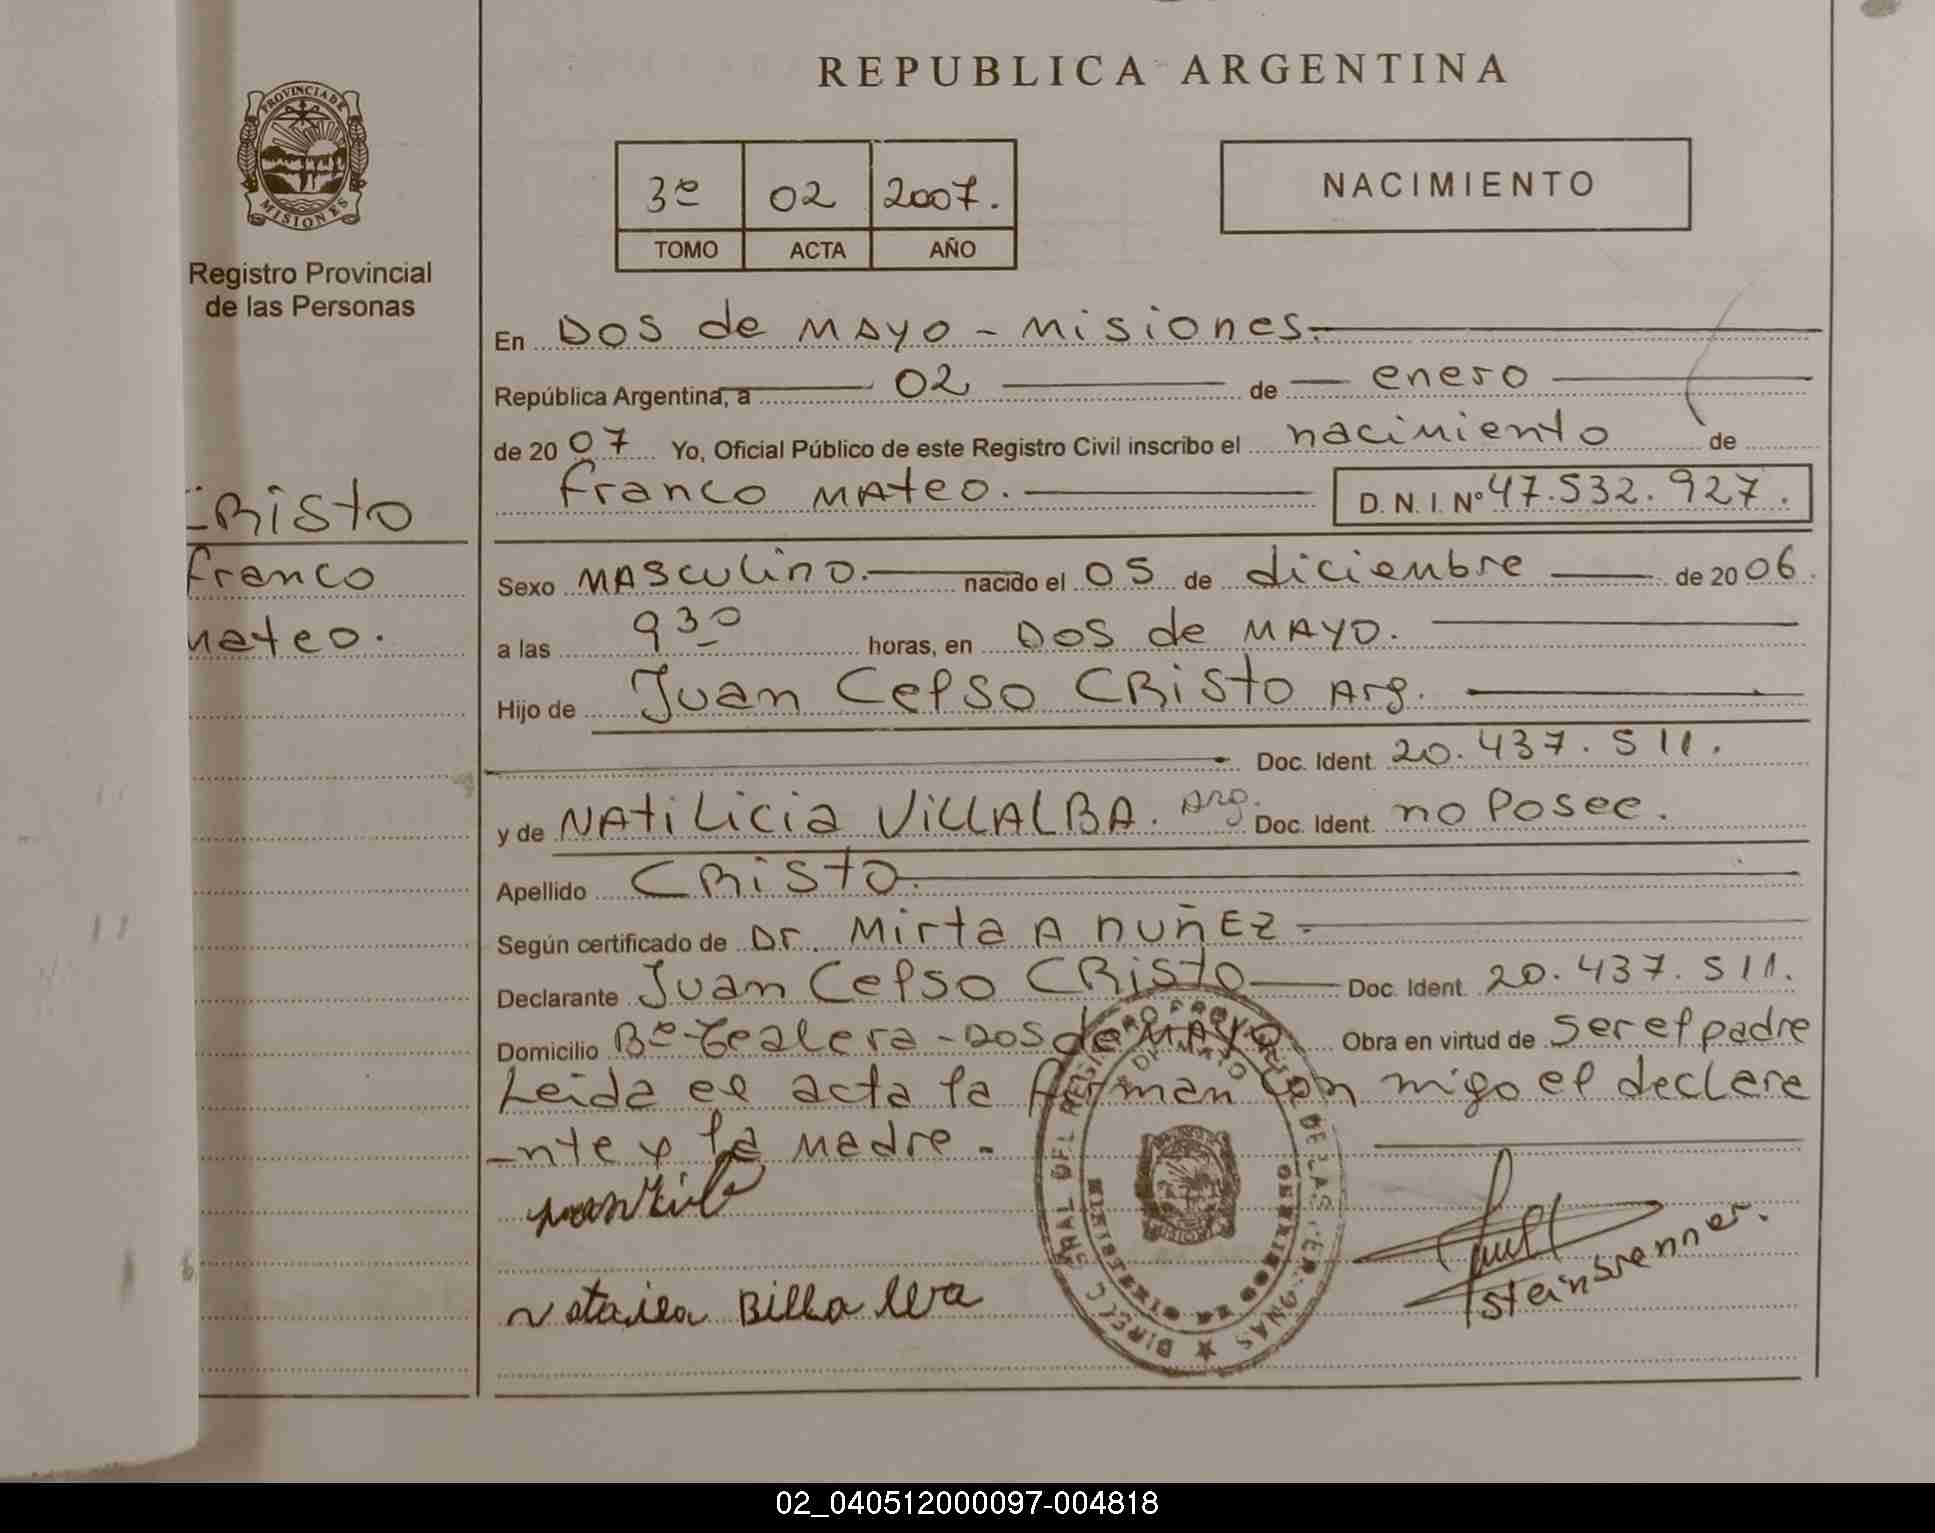 REPUBLICA ARGENTINA
PROVINCIA DE
MISIONES
Registro Provincial
de las Personas
3º 02 2007.
TOMO ACTA AÑO
NACIMIENTO
En DOS de MAYO - Misiones.
República Argentina, a 02 de enero
de 2007 Yo, Oficial Público de este Registro Civil inscribo el nacimiento de
Franco MAteo. D. N. I. Nº 47.532.927.
CRISto
Franco
Mateo.
Sexo MAsculino. nacido el 05 de diciembre de 2006.
a las 9 30 horas, en DOS de MAYO.
Hijo de Juan Celso CRISto Arg.
Doc. Ident. 20.437.511.
y de NAtiLicia ViLLALBA. Arg. Doc. Ident. no Posee.
Apellido CRISto.
Según certificado de Dr. Mirta A nuñEz
Declarante Juan Celso CRISto Doc. Ident. 20.437.511.
Domicilio Bº Tealera - DOS de MAYO Obra en virtud de Ser el padre
Leida el acta la firman con migo el declara
-nte y la madre.
DIREC GRAL DEL REGISTRO PROV DE LAS PERSONAS
MINISTERIO DE GOBIERNO
DOS DE MAYO
Billa lva
Steinbrenner.
02_040512000097-004818